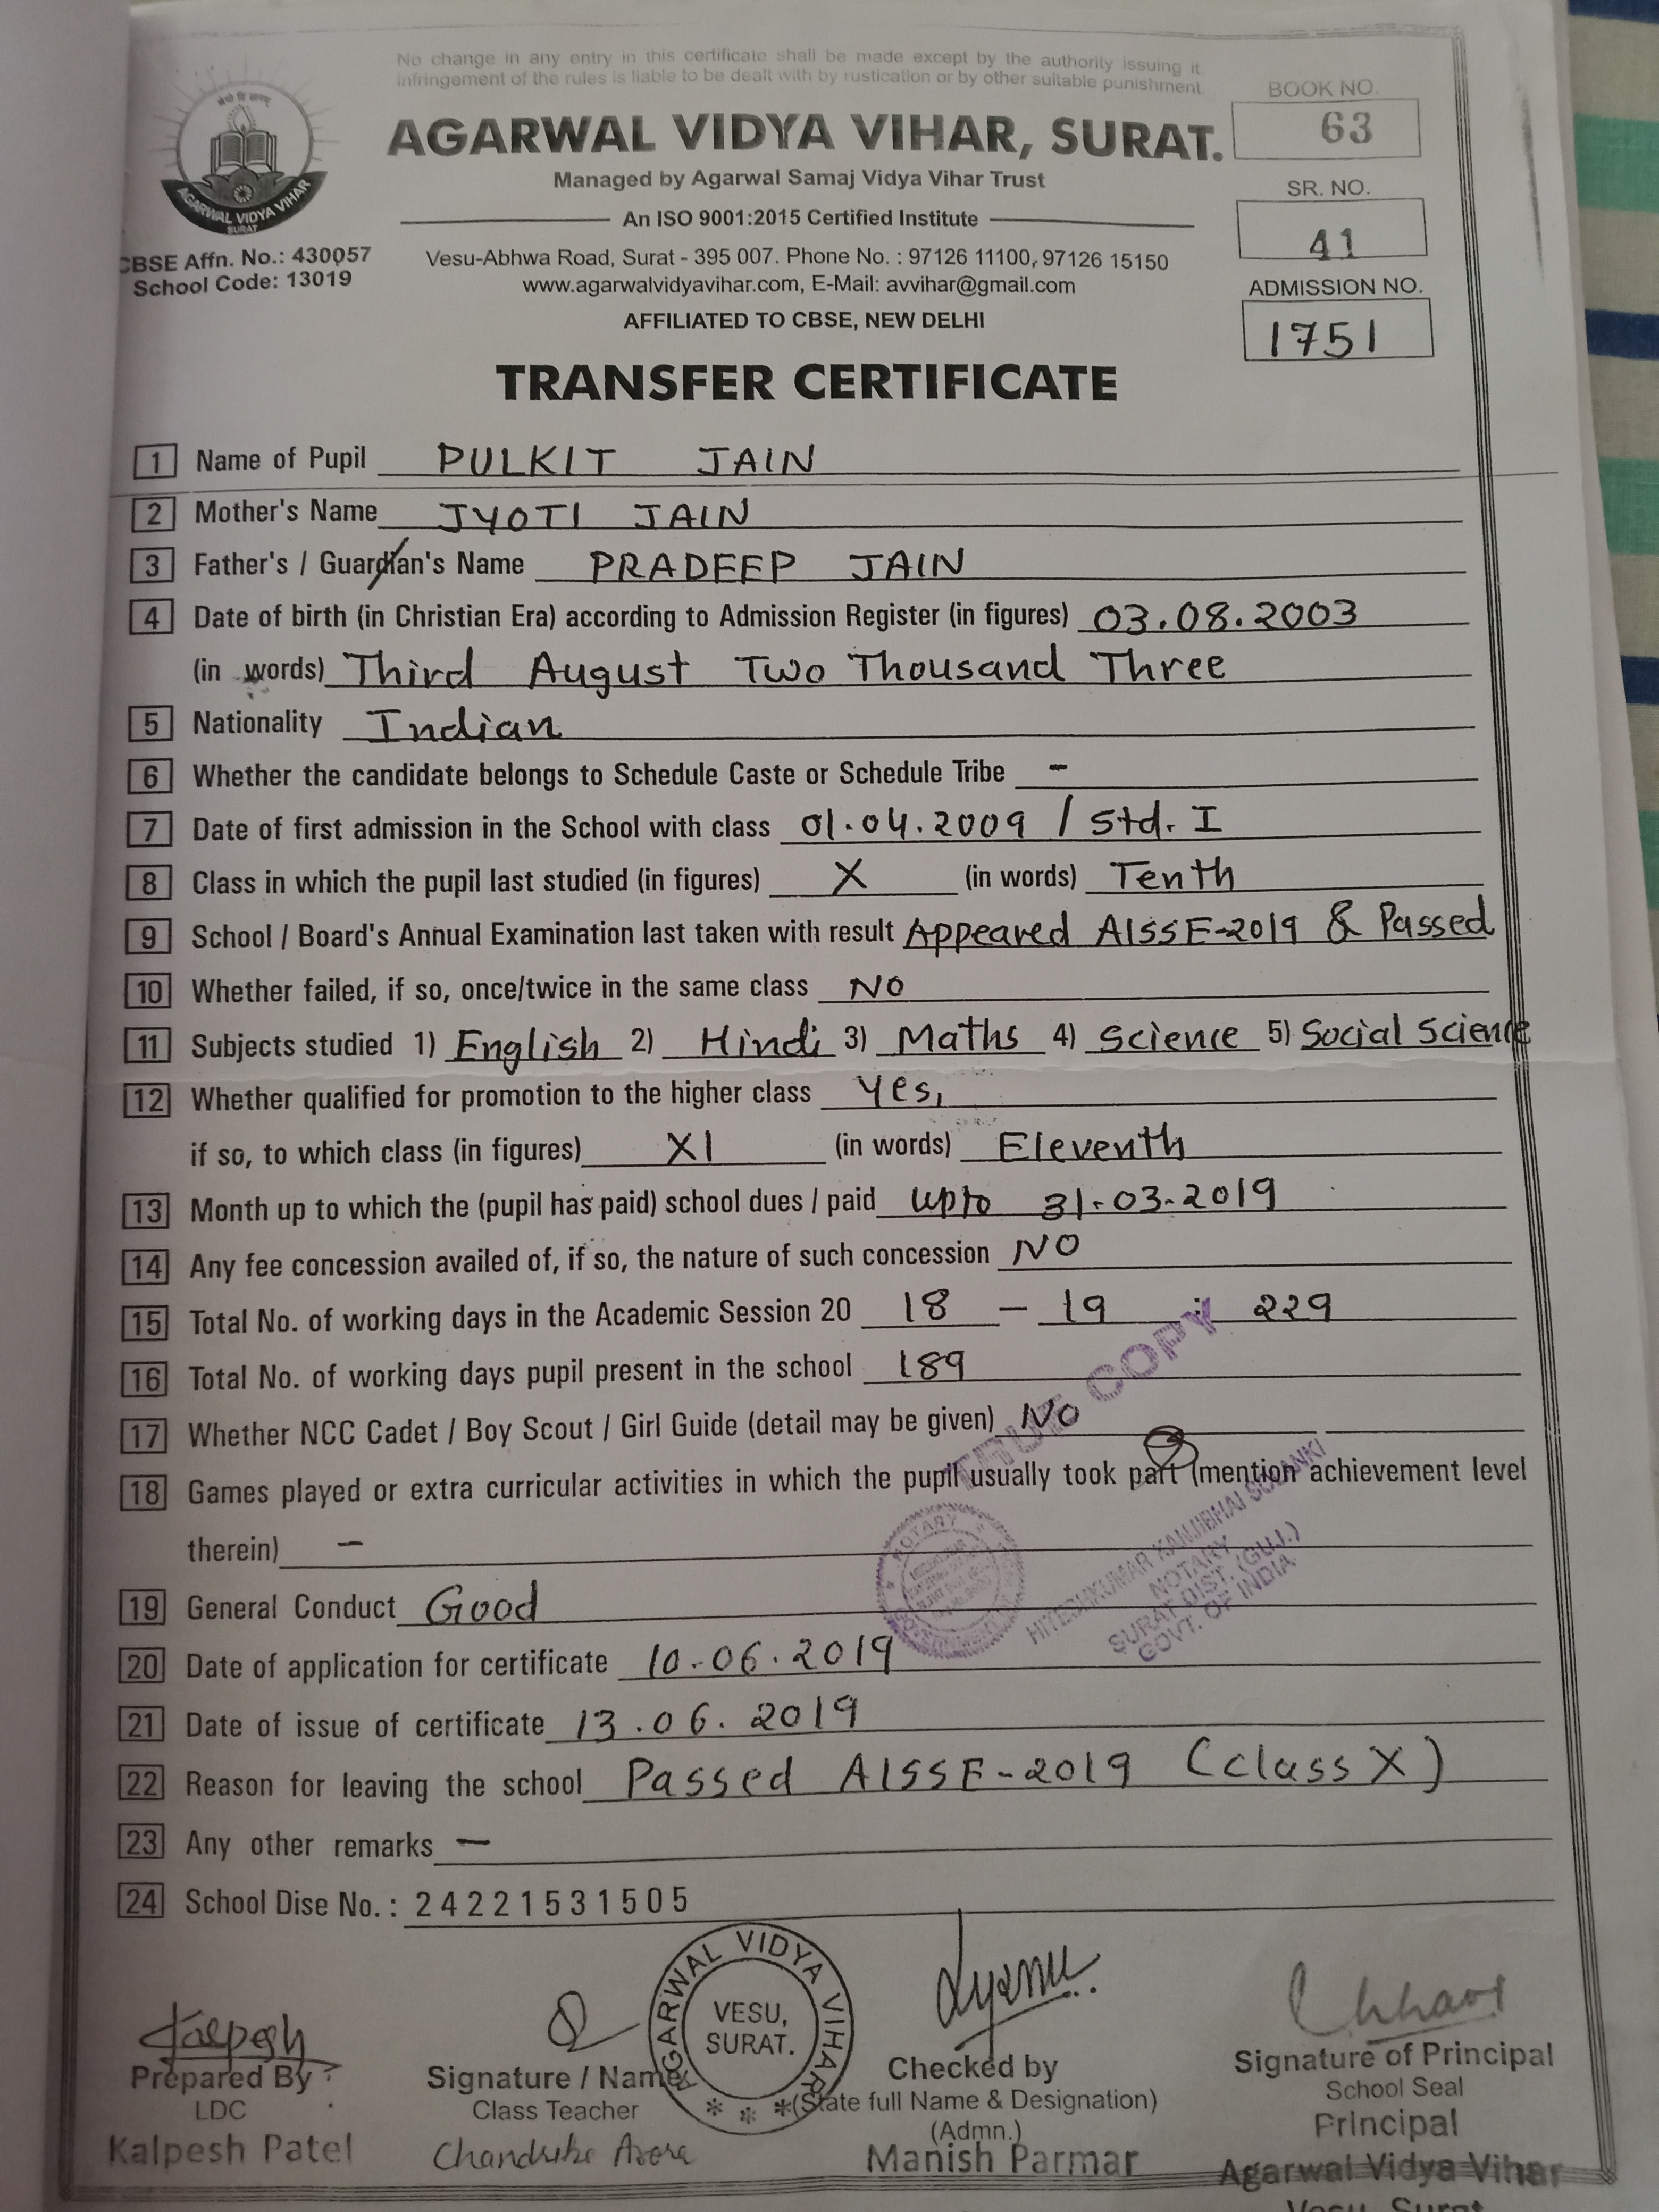 No change in any entry in this certificate shall be made except by the authority issuing it
infringement of the rules is liable to be dealt with by rustication or by other suitable punishment.
BOOK NO.
63
AGARWAL VIDYA VIHAR, SURAT.
Managed by Agarwal Samaj Vidya Vihar Trust
SR. NO.
41
An ISO 9001:2015 Certified Institute
AGARWAL VIDYA VIHAR
SURAT
CBSE Affn. No.: 430057
School Code: 13019
Vesu-Abhwa Road, Surat - 395 007. Phone No. : 97126 11100, 97126 15150
www.agarwalvidyavihar.com, E-Mail: avvihar@gmail.com
ADMISSION NO.
1751
AFFILIATED TO CBSE, NEW DELHI
TRANSFER CERTIFICATE
1 Name of Pupil PULKIT JAIN
2 Mother's Name JYOTI JAIN
3 Father's / Guardian's Name PRADEEP JAIN
4 Date of birth (in Christian Era) according to Admission Register (in figures) 03.08.2003
(in words) Third August Two Thousand Three
5 Nationality Indian
6 Whether the candidate belongs to Schedule Caste or Schedule Tribe -
7 Date of first admission in the School with class 01.04.2009 / Std. I
8 Class in which the pupil last studied (in figures) X (in words) Tenth
9 School / Board's Annual Examination last taken with result Appeared AISSE-2019 & Passed
10 Whether failed, if so, once/twice in the same class NO
11 Subjects studied 1) English 2) Hindi 3) Maths 4) Science 5) Social Science
12 Whether qualified for promotion to the higher class Yes,
if so, to which class (in figures) XI (in words) Eleventh
13 Month up to which the (pupil has paid) school dues / paid upto 31-03-2019
14 Any fee concession availed of, if so, the nature of such concession NO
15 Total No. of working days in the Academic Session 20 18 - 19 : 229
16 Total No. of working days pupil present in the school 189
17 Whether NCC Cadet / Boy Scout / Girl Guide (detail may be given) NO
TRUE COPY
18 Games played or extra curricular activities in which the pupil usually took part (mention achievement level
therein) -
NOTARY
HITESHKUMAR KANJIBHAI SOLANKI
NOTARY
SURAT DIST. (GUJ.)
GOVT. OF INDIA
19 General Conduct Good
20 Date of application for certificate 10.06.2019
21 Date of issue of certificate 13.06.2019
22 Reason for leaving the school Passed AISSE-2019 (class X)
23 Any other remarks -
24 School Dise No. : 24221531505
AGARWAL VIDYA VIHAR
VESU,
SURAT.
Kalpesh
Prepared By
LDC
Kalpesh Patel
Signature / Name
Class Teacher
Chandrika Arora
Checked by
(State full Name & Designation)
(Admn.)
Manish Parmar
Signature of Principal
School Seal
Principal
Agarwal Vidya Vihar
Vesu, Surat